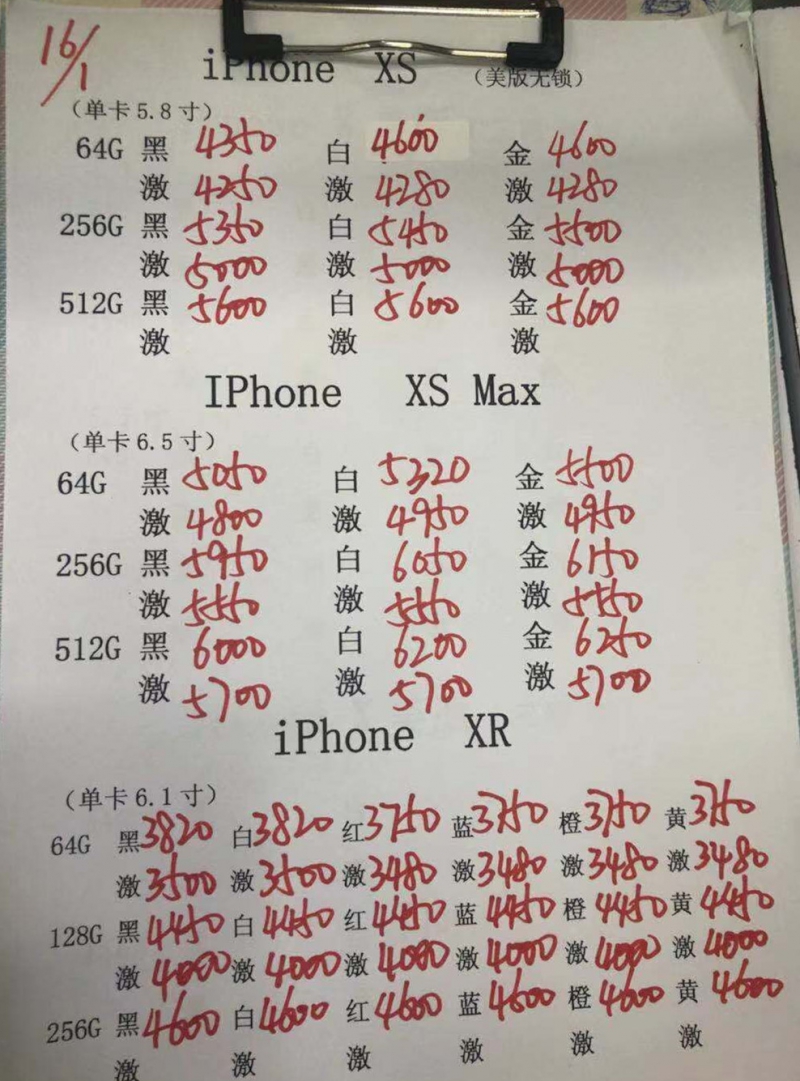 16/1
iPhone XS （美版无锁）
（单卡5.8寸）
64G 黑 4350 白 4600 金 4600
激 4250 激 4280 激 4280
256G 黑 5350 白 5450 金 5500
激 5000 激 5000 激 5000
512G 黑 5600 白 5600 金 5600
激 激 激
IPhone XS Max
（单卡6.5寸）
64G 黑 5050 白 5320 金 5500
激 4800 激 4950 激 4950
256G 黑 5950 白 6050 金 6150
激 5550 激 5550 激 5550
512G 黑 6000 白 6200 金 6250
激 5700 激 5700 激 5700
iPhone XR
（单卡6.1寸）
64G 黑 3820 白 3820 红 3750 蓝 3750 橙 3750 黄 3750
激 3500 激 3500 激 3480 激 3480 激 3480 激 3480
128G 黑 4450 白 4450 红 4450 蓝 4450 橙 4450 黄 4450
激 4000 激 4000 激 4000 激 4000 激 4000 激 4000
256G 黑 4600 白 4600 红 4600 蓝 4600 橙 4600 黄 4600
激 激 激 激 激 激